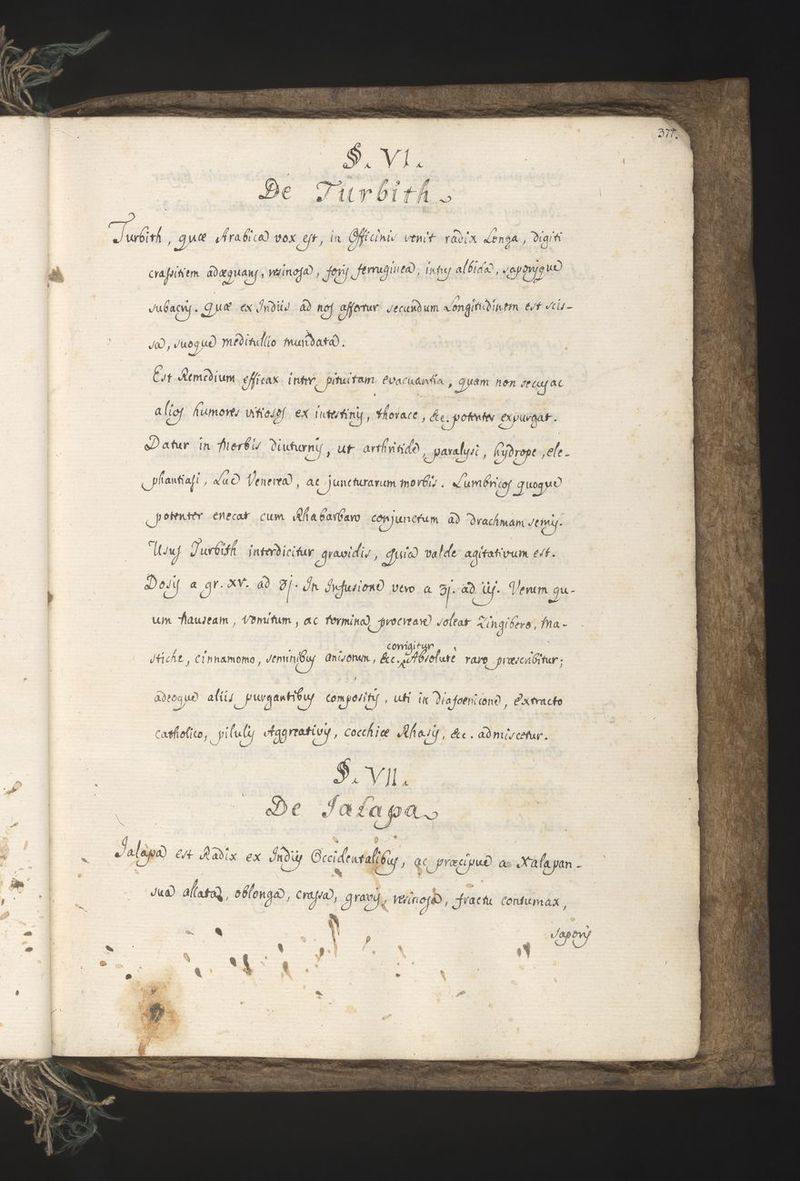 377.
§. VI.
De Turbith
Turbith, quæ Arabica vox est, in Officinis venit radix Longa, digiti
crassitiem adæquans, resinosa, foris ferruginea, intus albida, saporisque
subacris. Quæ ex Indiis ad nos affertur secundum Longitudinem est scis-
sa, suoque meditullio mundata.
Est Remedium efficax inter pituitam evacuantia, quam non secus ac
alios humores vitiosos ex intestinis, thorace, &c. potenter expurgat.
Datur in Morbis diuturnis, ut arthritide, paralysi, hydrope, ele-
phantiasi, Lue Venerea, ac juncturarum morbis. Lumbricos quoque
potenter enecat cum Rhabarbaro conjunctum ad drachmam semis.
Usus Turbith interdicitur gravidis, quia valde agitativum est.
Dosis a gr. xv. ad ʒj. In Infusione vero a ʒj. ad iij. Verum qu-
um nauseam, vomitum, ac tormina procreare soleat Zingibere, Ma-
stiche, cinnamomo, seminibus anisorum, &c. corrigitur. Absolutè raro præscribitur;
adeoque aliis purgantibus compositis, uti in diaphœnicone, extracto
catholico, pilulis Aggreativis, cocchiæ Rhasis, &c. admiscetur.
§. VII.
De Jalapa
Jalapa est Radix ex Indiis Occidentalibus, ac præcipue a Xalapan-
sua allata, oblonga, crassa, gravis, resinosa, fractu contumax,
saporis